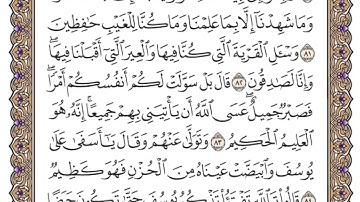 وَمَا شَهِدْنَآ إِلَّا بِمَا عَلِمْنَا وَمَا كُنَّا لِلْغَيْبِ حَٰفِظِينَ
٨١ وَسْـَٔلِ ٱلْقَرْيَةَ ٱلَّتِي كُنَّا فِيهَا وَٱلْعِيرَ ٱلَّتِيٓ أَقْبَلْنَا فِيهَاۖ
وَإِنَّا لَصَٰدِقُونَ ٨٢ قَالَ بَلْ سَوَّلَتْ لَكُمْ أَنفُسُكُمْ أَمْرًاۖ
فَصَبْرٌ جَمِيلٌۖ عَسَى ٱللَّهُ أَن يَأْتِيَنِي بِهِمْ جَمِيعًاۚ إِنَّهُۥ هُوَ
ٱلْعَلِيمُ ٱلْحَكِيمُ ٨٣ وَتَوَلَّىٰ عَنْهُمْ وَقَالَ يَٰٓأَسَفَىٰ عَلَىٰ
يُوسُفَ وَٱبْيَضَّتْ عَيْنَاهُ مِنَ ٱلْحُزْنِ فَهُوَ كَظِيمٌ
٨٤ قَالُوا۟ تَٱللَّهِ تَفْتَؤُا۟ تَذْكُرُ يُوسُفَ حَتَّىٰ تَكُونَ حَرَضًا